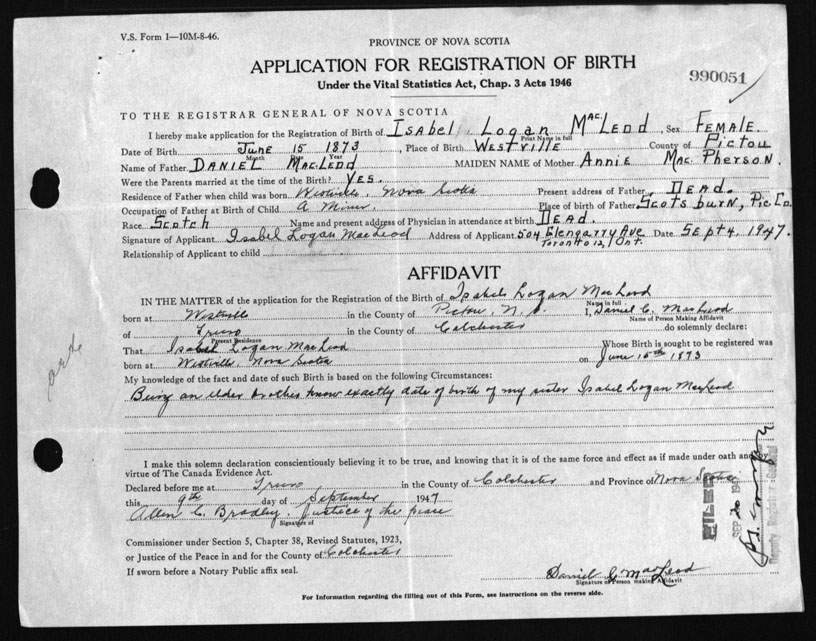 V.S. Form 1—10M-8-46.
PROVINCE OF NOVA SCOTIA
APPLICATION FOR REGISTRATION OF BIRTH
990051
Under the Vital Statistics Act, Chap. 3 Acts 1946
TO THE REGISTRAR GENERAL OF NOVA SCOTIA
I hereby make application for the Registration of Birth of ISabel Logan MacLeod, Sex FEMALE.
Print Name in full
Date of Birth June 15 1873, Place of Birth WESTVILLE County of Pictou
Month Year
Name of Father DANIEL MacLeod MAIDEN NAME of Mother Annie MacPherson.
Were the Parents married at the time of the Birth? YES.
Residence of Father when child was born Westville, Nova Scotia Present address of Father DEAD.
Occupation of Father at Birth of Child A Miner. Place of birth of Father Scotsburn, Pic Co.
Race Scotch Name and present address of Physician in attendance at birth DEAD.
Signature of Applicant Isabel Logan MacLeod Address of Applicant 504 Glengarry Ave Date Sept 4, 1947.
Toronto 12, Ont.
Relationship of Applicant to child
AFFIDAVIT
IN THE MATTER of the application for the Registration of the Birth of Isabel Logan MacLeod
Name in full
born at Westville in the County of Pictou, N.S. I, Daniel C. MacLeod
Name of Person Making Affidavit
of Truro in the County of Colchester do solemnly declare:
Present Residence
That Isabel Logan MacLeod Whose Birth is sought to be registered was
born at Westville, Nova Scotia on June 15th 1873
My knowledge of the fact and date of such Birth is based on the following Circumstances:
Being an elder brother know exactly date of birth of my sister Isabel Logan MacLeod
I make this solemn declaration conscientiously believing it to be true, and knowing that it is of the same force and effect as if made under oath and by
virtue of The Canada Evidence Act.
Declared before me at Truro in the County of Colchester and Province of Nova Scotia
this 9th day of September 1947
Allen C. Bradley. Justice of the peace
Signature of
FILED
SEP 20 194
Deputy Registrar
Commissioner under Section 5, Chapter 38, Revised Statutes, 1923,
or Justice of the Peace in and for the County of Colchester
If sworn before a Notary Public affix seal.
Daniel C. MacLeod
Signature of Person making Affidavit
For Information regarding the filling out of this Form, see instructions on the reverse side.